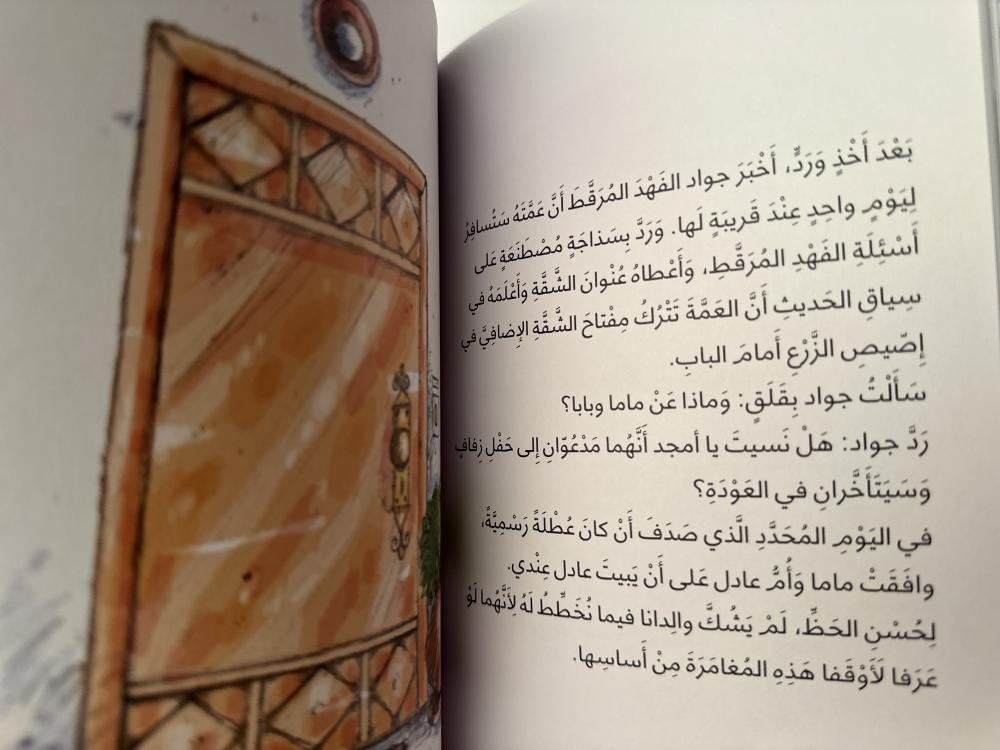 بَعْدَ أَخْذٍ وَرَدٍّ، أَخْبَرَ جواد الفَهْدَ المُرَقَّطَ أَنَّ عَمَّتَهُ سَتُسافِرُ
لِيَوْمٍ واحِدٍ عِنْدَ قَريبَةٍ لَها. وَرَدَّ بِسَذاجَةٍ مُصْطَنَعَةٍ عَلى
أَسْئِلَةِ الفَهْدِ المُرَقَّطِ، وَأَعْطاهُ عُنْوانَ الشَّقَّةِ وَأَعْلَمَهُ في
سِياقِ الحَديثِ أَنَّ العَمَّةَ تَتْرُكُ مِفْتاحَ الشَّقَّةِ الإِضافِيَّ في
إِصّيصِ الزَّرْعِ أَمامَ البابِ.
سَأَلْتُ جواد بِقَلَقٍ: وَماذا عَنْ ماما وبابا؟
رَدَّ جواد: هَلْ نَسيتَ يا أمجد أَنَّهُما مَدْعُوّانِ إِلى حَفْلِ زِفافٍ
وَسَيَتَأَخَّرانِ في العَوْدَةِ؟
في اليَوْمِ المُحَدَّدِ الَّذي صَدَفَ أَنْ كانَ عُطْلَةً رَسْمِيَّةً،
وافَقَتْ ماما وَأُمُّ عادل عَلى أَنْ يَبيتَ عادل عِنْدي.
لِحُسْنِ الحَظِّ، لَمْ يَشُكَّ والِدانا فيما نُخَطِّطُ لَهُ لِأَنَّهُما لَوْ
عَرَفا لَأَوْقَفا هَذِهِ المُغامَرَةَ مِنْ أَساسِها.